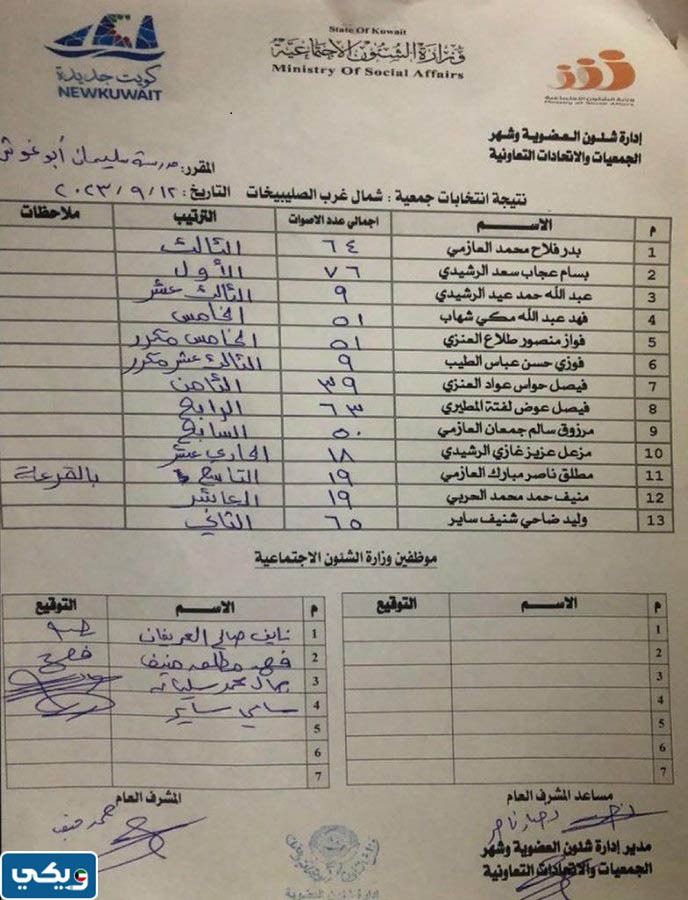 State Of Kuwait
وزارة الشئون الاجتماعية
Ministry Of Social Affairs
كويت جديدة
NEWKUWAIT
وزارة الشئون الاجتماعية
Ministry of Social Affairs
إدارة شئون العضوية وشهر
الجمعيات والاتحادات التعاونية
المقرر: مدرسة سليمان أبو غوش
نتيجة انتخابات جمعية : شمال غرب الصليبيخات التاريخ: ٢٠٢٣/٩/١٢
م الاسم اجمالي عدد الاصوات الترتيب ملاحظات
1 بدر فلاح محمد العازمي ٦٤ الثالث
2 بسام عجاب سعد الرشيدي ٧٦ الأول
3 عبد الله حمد عيد الرشيدي ٩ الثالث عشر
4 فهد عبد الله مكي شهاب ٥١ الخامس
5 فواز منصور طلاع العنزي ٥١ الخامس مكرر
6 فوزي حسن عباس الطيب ٩ الثالث عشر مكرر
7 فيصل حواس عواد العنزي ٣٩ الثامن
8 فيصل عوض لفتة المطيري ٦٣ الرابع
9 مرزوق سالم جمعان العازمي ٥٠ السابع
10 مزعل عزيز غازي الرشيدي ١٨ الحادي عشر
11 مطلق ناصر مبارك العازمي ١٩ التاسع بالقرعة
12 منيف حمد محمد الحربي ١٩ العاشر
13 وليد ضاحي شنيف ساير ٦٥ الثاني
موظفين وزارة الشئون الاجتماعية
م الاسم التوقيع
1
2
3
4
5
6
7
م الاسم التوقيع
1 نايف صالح العريفان
2 فهد مطلق منيف
3 محمد
4 سامي ساير
5
6
7
مساعد المشرف العام
المشرف العام
مدير إدارة شئون العضوية وشهر
الجمعيات والاتحادات التعاونية
إدارة شئون العضوية
ويكي